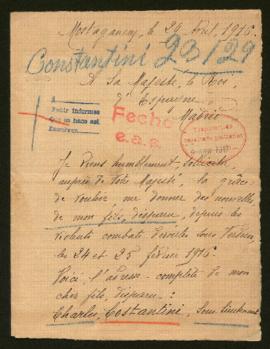 Mostaganem, le 24 Avril, 1916.
Constantini 23/129
A Sa Majesté le Roi,
d'Espagne,
Madrid
A
Pedir informes
Fecho
e.a.s.
Je viens humblement solliciter
auprès de Votre Majesté la grâce
de vouloir me donner des nouvelles
de mon fils, disparu, depuis les
violents combats livrés sous Verdun,
les 24 et 25 février 1916.
Voici l'adresse complète de mon
cher fils, disparu :
Charles Costantini, Sous-lieutenant